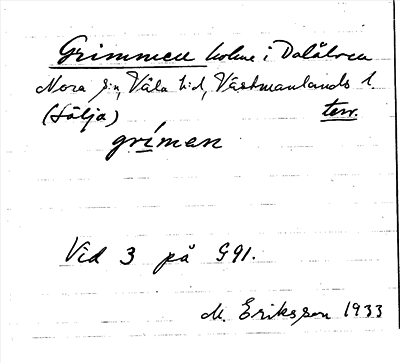 Grimmen holme i Dalälven
Nora sn, Våla hd, Västmanlands l.
(följa) terr.
grímen
Vid 3 på G91.
M. Eriksson 1933